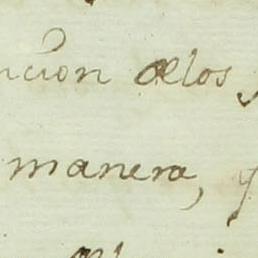 ncion delos
manera, y